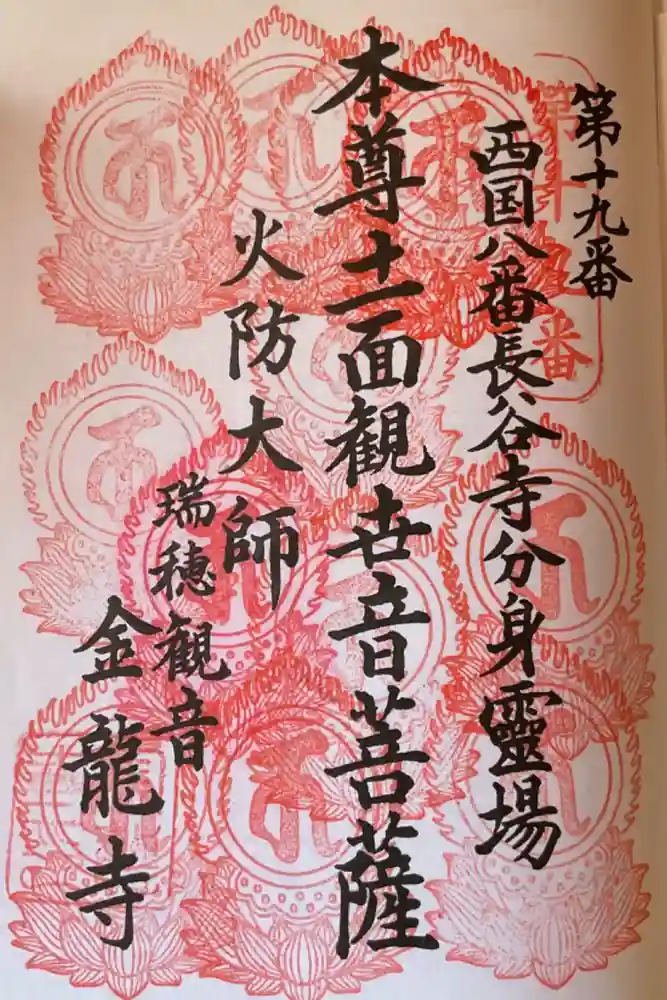 第十九番
西国八番長谷寺分身靈場
本尊十一面観世音菩薩
火防大師
瑞穂観音
金龍寺
第十九番